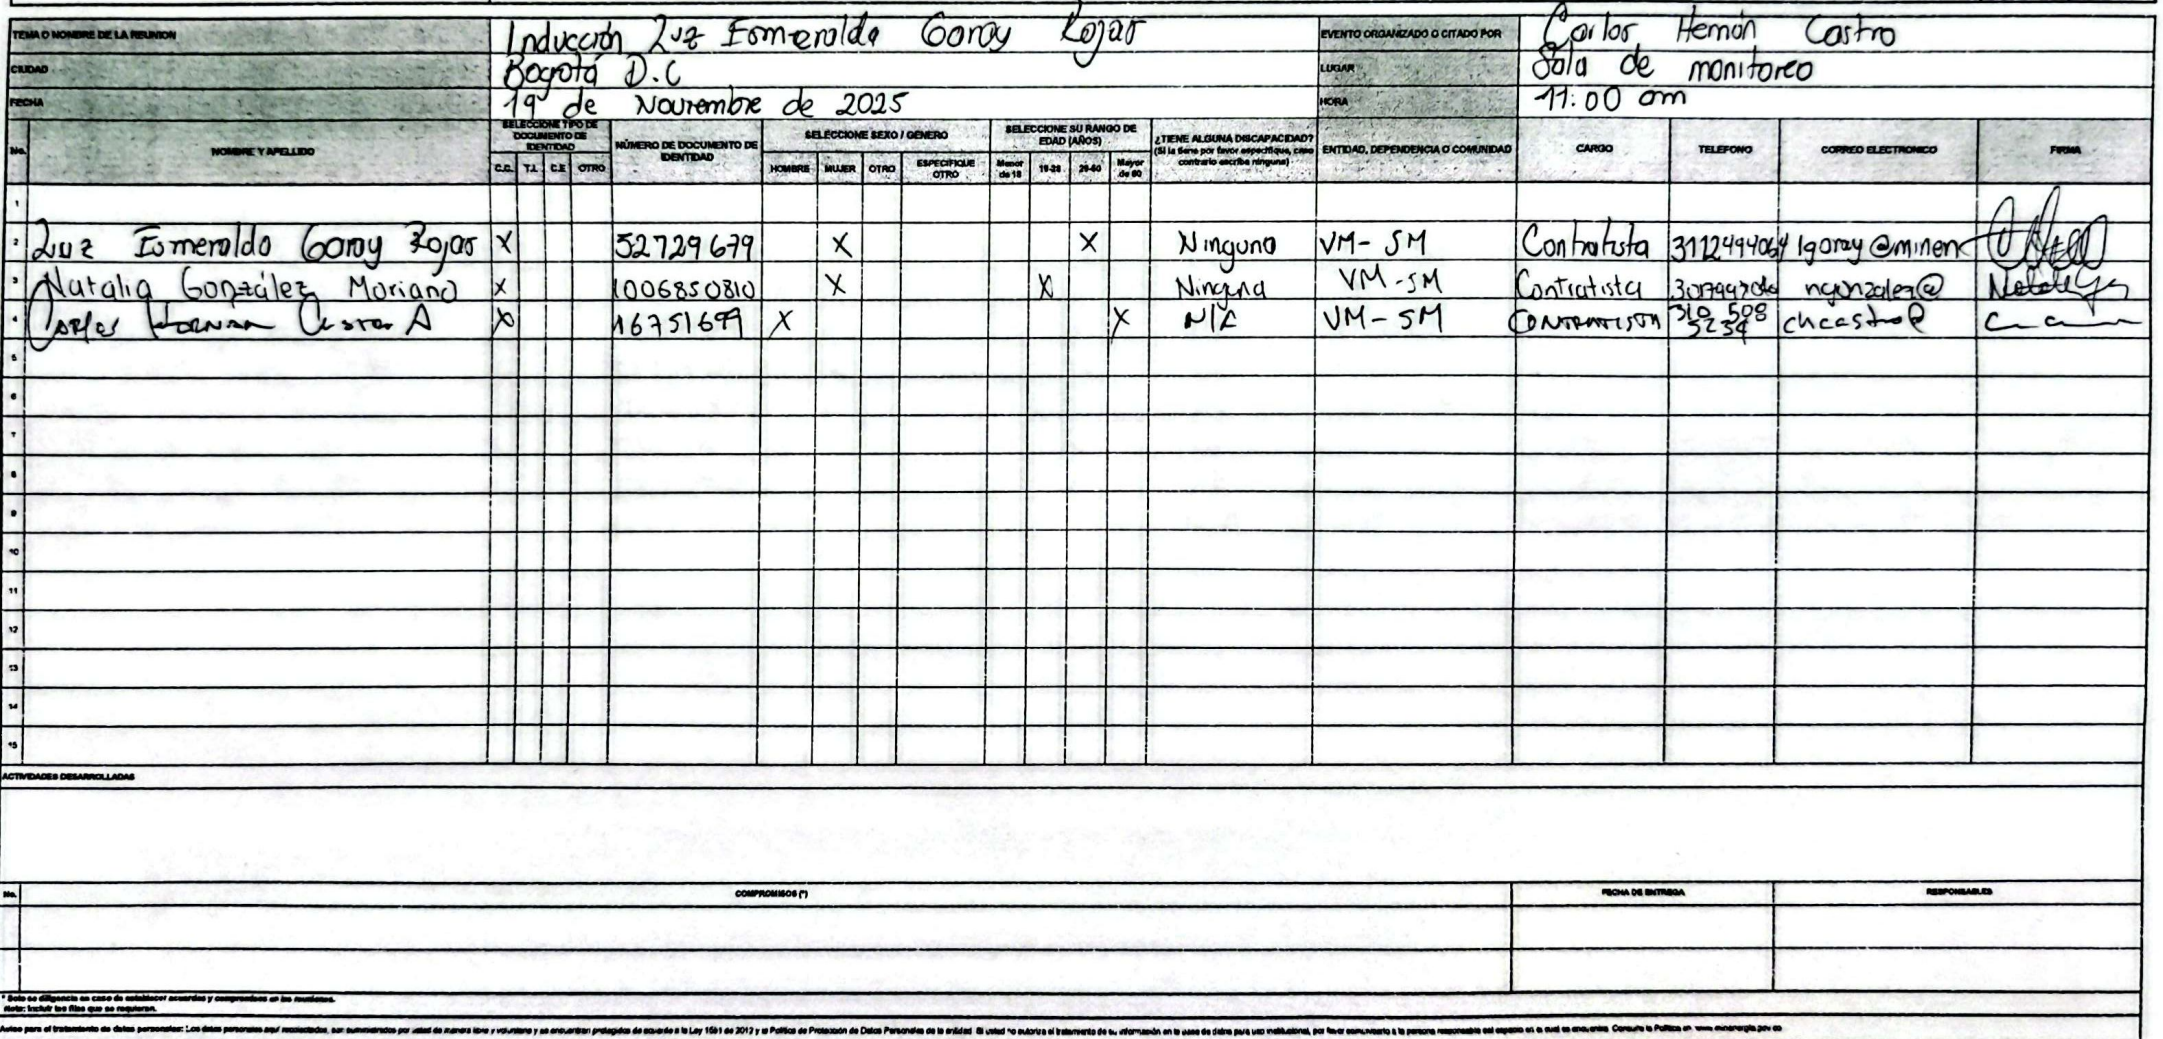 TEMA O NOMBRE DE LA REUNION Inducción Luz Esmeralda Garay Rojas EVENTO ORGANIZADO O CITADO POR Carlos Hernán Castro
CIUDAD Bogotá D.C LUGAR Sala de monitoreo
FECHA 19 de Noviembre de 2025 HORA 11:00 am
No. NOMBRE Y APELLIDO SELECCIONE TIPO DE DOCUMENTO DE IDENTIDAD NÚMERO DE DOCUMENTO DE IDENTIDAD SELECCIONE SEXO / GENERO SELECCIONE SU RANGO DE EDAD (AÑOS) ¿TIENE ALGUNA DISCAPACIDAD? (Si la tiene por favor especifique, caso contrario escriba ninguna) ENTIDAD, DEPENDENCIA O COMUNIDAD CARGO TELEFONO CORREO ELECTRONICO FIRMA
C.C. T.I. C.E OTRO HOMBRE MUJER OTRO ESPECIFIQUE OTRO Menor de 18 19-28 29-60 Mayor de 60
1
2 Luz Esmeralda Garay Rojas X 52729679 X X Ninguna VM-SM Contratista 3112494064 lgaray@minen
3 Natalia González Moriano X 1006850810 X X Ninguna VM-SM Contratista ngonzalez@
4 Carlos Hernan Castro A X 16751699 X X N/A VM-SM CONTRATISTA 310 508 5234 chcastro@
5
6
7
8
9
10
11
12
13
14
15
ACTIVIDADES DESARROLLADAS
No. COMPROMISOS (*) FECHA DE ENTREGA RESPONSABLES
* Solo se diligencia en caso de establecer acuerdos y compromisos en las reuniones.
Nota: Incluir las filas que se requieran.
Aviso para el tratamiento de datos personales: Los datos personales aquí recolectados, son suministrados por usted de manera libre y voluntaria y se encuentran protegidos de acuerdo a la Ley 1581 de 2012 y la Política de Protección de Datos Personales de la entidad. Si usted no autoriza el tratamiento de su información en la base de datos para uso institucional, por favor comunicarlo a la persona responsable del espacio en el cual se encuentra. Consulte la Política en www.minenergia.gov.co